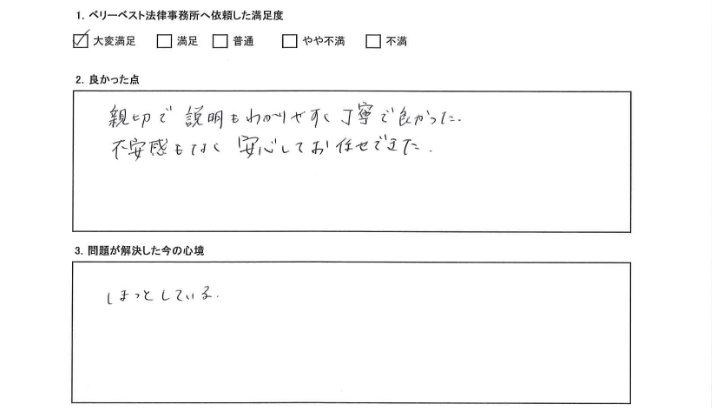 1. ベリーベスト法律事務所へ依頼した満足度
☑ 大変満足 □ 満足 □ 普通 □ やや不満 □ 不満
2. 良かった点
親切で説明もわかりやすく丁寧で良かった.
不安感もなく安心してお任せできた.
3. 問題が解決した今の心境
ほっとしている.